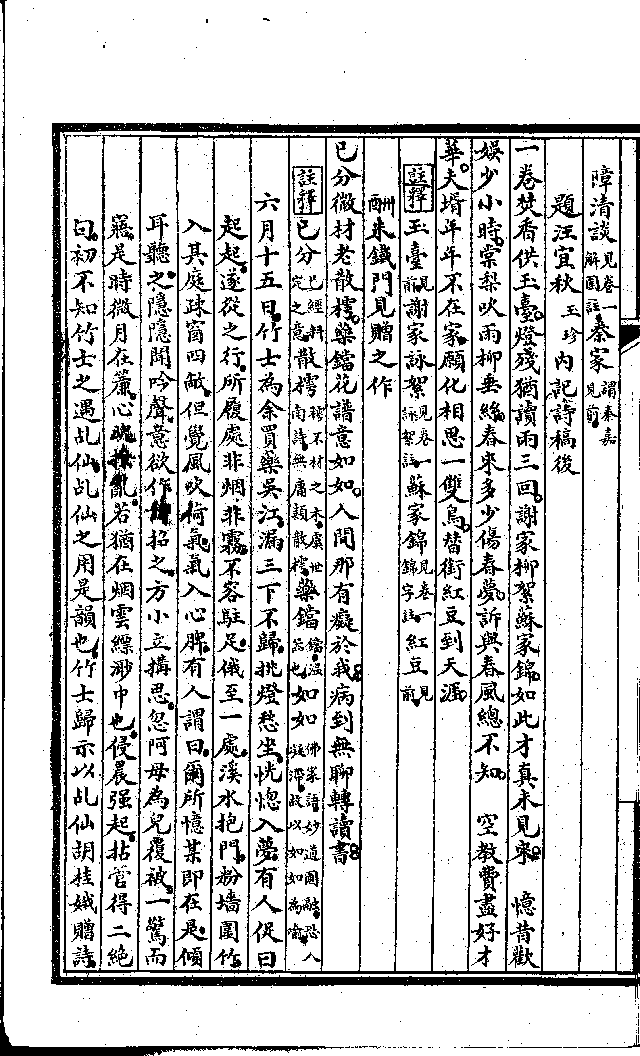 障清談見卷一解圍註秦家謂秦嘉見前
題汪宜秋玉珍內記詩稿後
一卷焚香供玉臺。燈殘猶讀兩三回。謝家柳絮蘇家錦。如此才真未見來。　憶昔歡
娛少小時。棠梨吹雨柳垂絲。春來多少傷春夢。訴與春風總不知。　空教費盡好才
華。夫壻年年不在家。願化相思一雙鳥。替銜紅豆到天涯。
註釋玉臺見前謝家詠絮見卷一詠絮註蘇家錦見卷一錦字註紅豆見前
酬朱鐵門見贈之作
已分微材老散樗。藥鐺花譜意如如。人間那有癡於我。病到無聊轉讀書。
註釋已分已經料定之意散樗樗不材之木虞世南詩無庸類散樗藥鐺鐺溫器也如如佛家語妙道圓融恐入凝滯故以如如為喻
六月十五日。竹士為余買藥吳江。漏三下不歸。挑燈愁坐。恍惚入夢。有人促曰
起起。遂從之行。所履處非烟非霧。不容駐足。俄至一處。溪水抱門。粉墻圍竹。
入其庭疎窗四敞。但覺風吹荷氣。氣入心脾。有人謂曰。爾所憶某即在是。傾
耳聽之。隱隱聞吟聲。意欲作招之。方小立搆思。忽阿母為兒覆被。一驚而
寤。是時微月在簾。心魂撩亂。若猶在烟雲縹渺中也。侵晨强起。拈管得二絕
句。初不知竹士之遇乩仙。乩仙之用是韻也。竹士歸示以乩仙胡桂娥贈詩。